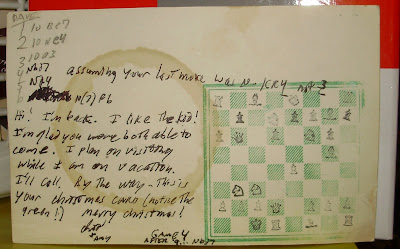 DAVE
1 10 BE7
2 10 NE4
3 10 D3
4 Nbd7
5 N24
6 N(7) P6
assuming your last move was
Hi! I'm back. I like the kid!
I'm glad you were both able to
come. I plan on visiting
while I am on vacation.
I'll call. By the way - This is
your christmas card (notice the
green!!) merry christmas!
GAME 4
AFTER 9... Nbd7